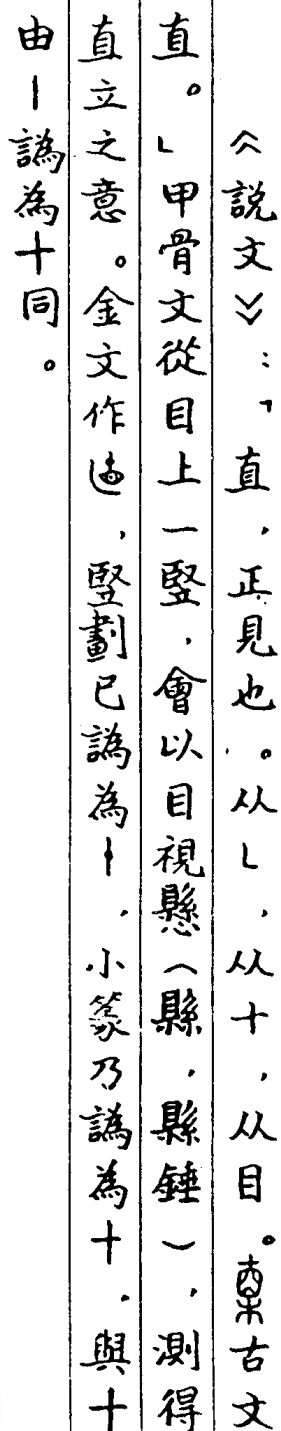 《說文》:「直,正見也。从乚,从十,从目。古文
直。」甲骨文從目上一豎,會以目視懸(縣,縣錘),測得
直立之意。金文作,豎劃已譌為,小篆乃譌為十,與十
由丨譌為十同。